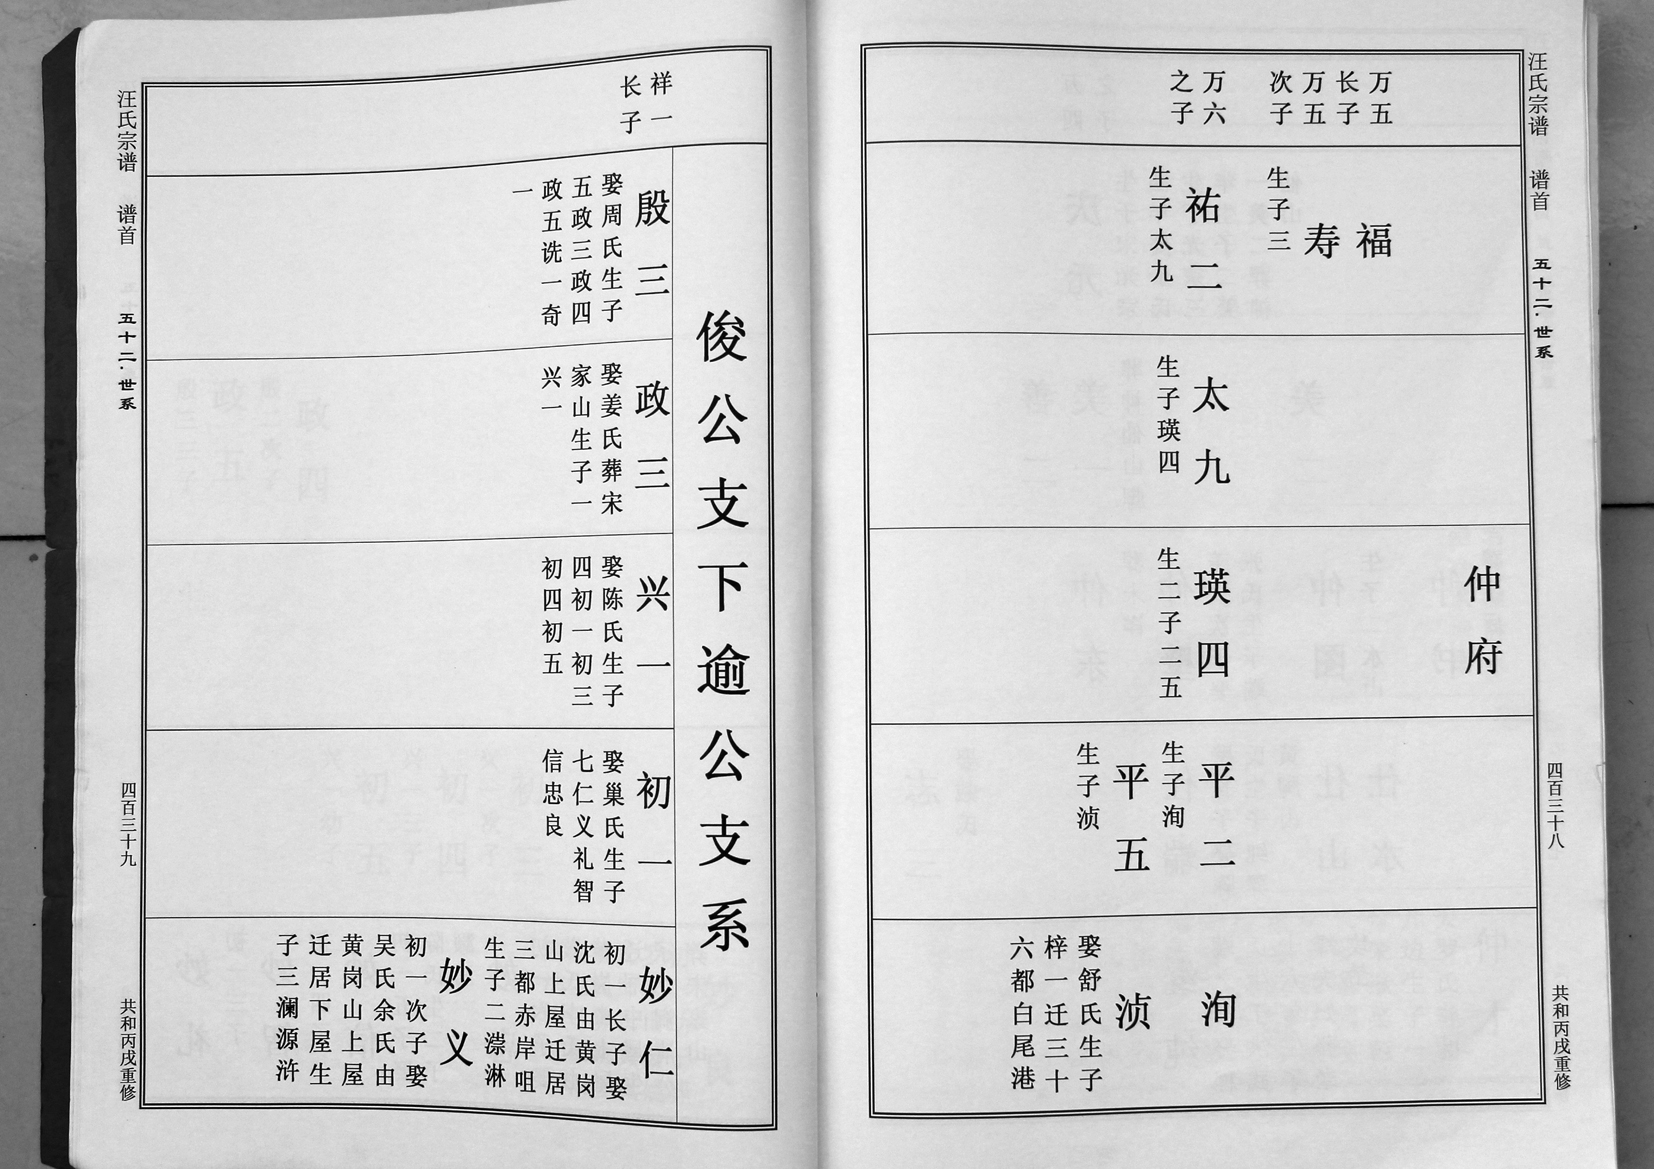 汪氏宗谱 谱首 五十二·世系 四百三十八 共和丙戌重修
万五
长子
万五
次子
万六
之子
福
寿
生子三
祐二
生子太九
太九
生子瑛四
仲府
瑛四
生二子二五
平二
生子洵
平五
生子浈
洵
浈
娶舒氏生子
梓一迁三十
六都白尾港
俊公支下逾公支系
祥一
长子
殷三
娶周氏生子
五政三政四
政五诜一奇
一
政三
娶姜氏葬宋
家山生子一
兴一
兴一
娶陈氏生子
四初一初三
初四初五
初一
娶巢氏生子
七仁义礼智
信忠良
妙仁
初一长子娶
沈氏由黄岗
山上屋迁居
三都赤岸咀
生子二潆淋
妙义
初一次子娶
吴氏余氏由
黄岗山上屋
迁居下屋生
子三澜源浒
汪氏宗谱 谱首 五十二·世系 四百三十九 共和丙戌重修